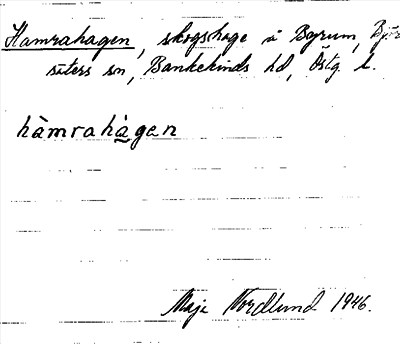 Hamrahagen, skogshage å Byrum, Björ
säters sn, Bankekinds hd, Östg. l.
hàmrahàgen
Maja Nordlund 1946.